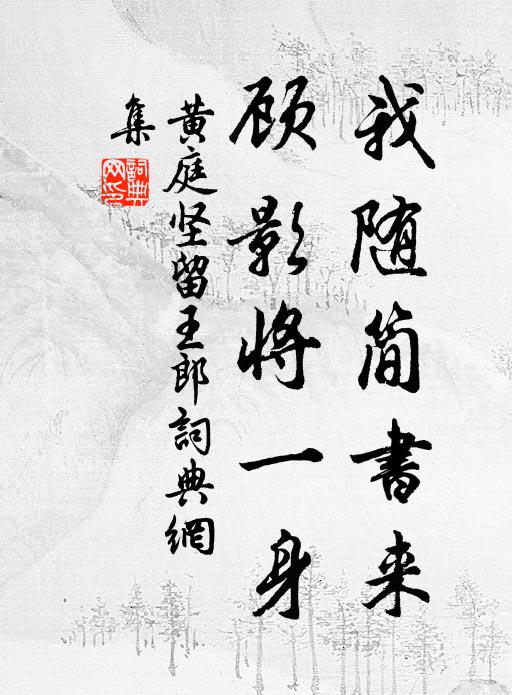 我随简書来
顾影将一身
黄庭坚留王郎詞典網
集
詞典網印